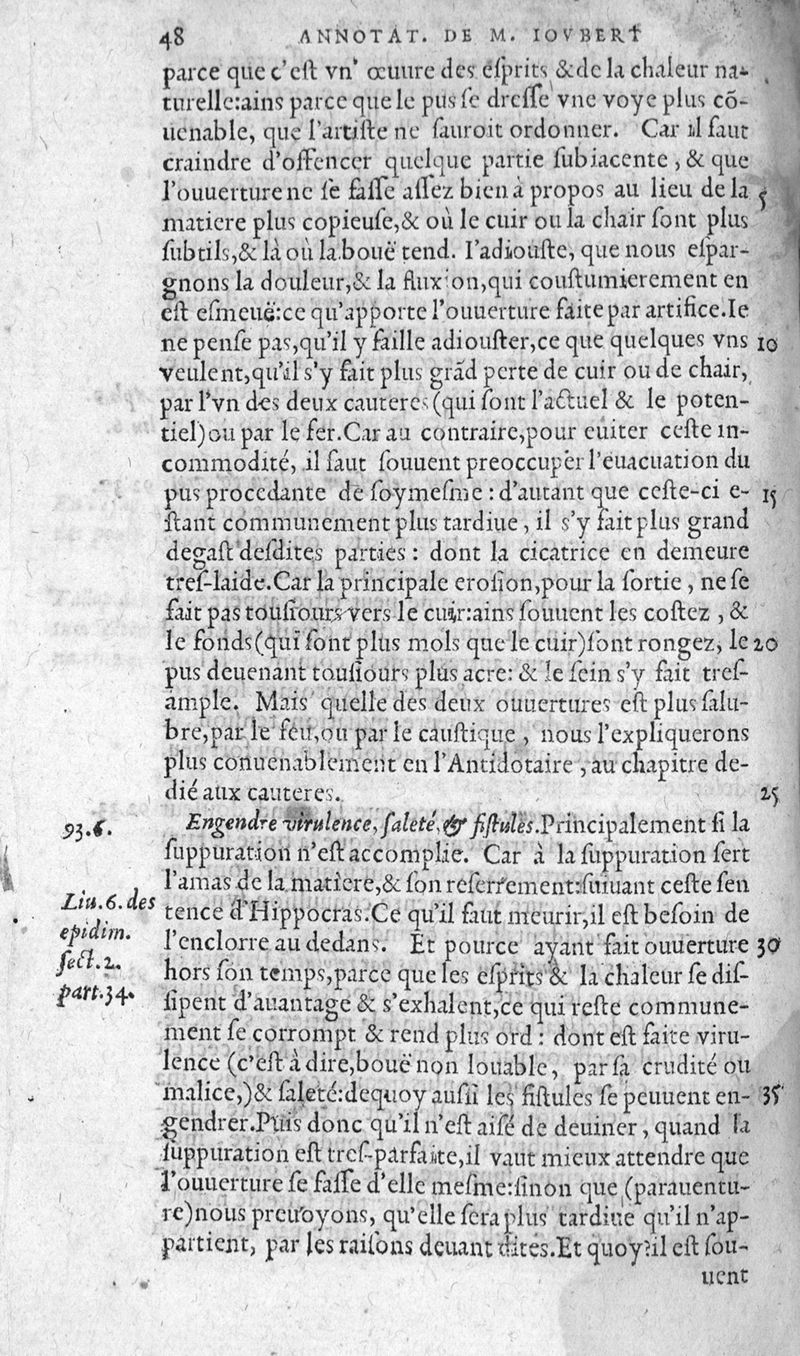 48 ANNOTAT. DE M. IOVBERT
parce que c'eſt vn' œuure des eſprits & de la chaleur na-
turelle:ains parce que le pus ſe dreſſe vne voye plus cõ-
uenable, que l'artiſte ne ſauroit ordonner. Car il faut
craindre d'offencer quelque partie ſubiacente , & que
l'ouuerture ne ſe faſſe aſſez bien à propos au lieu de la 5
matiere plus copieuſe,& où le cuir ou la chair ſont plus
ſubtils,& là où la bouë tend. I'adiouſte, que nous eſpar-
gnons la douleur,& la fluxion,qui couſtumierement en
eſt eſmeuë:ce qu'apporte l'ouuerture faite par artifice.Ie
ne penſe pas,qu'il y faille adiouſter,ce que quelques vns 10
veulent,qu'il s'y fait plus grãd perte de cuir ou de chair,
par l'vn des deux cauteres (qui ſont l'actuel & le poten-
tiel)ou par le fer.Car au contraire,pour euiter ceſte in-
commodité, il faut ſouuent preoccuper l'euacuation du
pus procedante de ſoymeſme : d'autant que ceſte-ci e- 15
ſtant communement plus tardiue , il s'y fait plus grand
degaſt deſdites parties : dont la cicatrice en demeure
treſ-laide.Car la principale eroſion,pour la ſortie , ne ſe
fait pas touſiours vers le cuir:ains ſouuent les coſtez , &
le fonds(qui ſont plus mols que le cuir)ſont rongez, le 20
pus deuenant touſiours plus acre: & le ſein s'y fait treſ-
ample. Mais quelle des deux ouuertures eſt plus ſalu-
bre,par le feu,ou par le cauſtique , nous l'expliquerons
plus conuenablement en l'Antidotaire , au chapitre de-
dié aux cauteres. 25
93.6. Engendre virulence, ſaleté, & fiſtules.Principalement ſi la
ſuppuration n'eſt accomplie. Car à la ſuppuration ſert
l'amas de la matiere,& ſon reſerrement:ſuiuant ceſte ſen
Liu.6.des tence d'Hippocras.Ce qu'il faut meurir,il eſt beſoin de
epidim. l'enclorre au dedans. Et pource ayant fait ouuerture 30
ſect.2. hors ſon temps,parce que les eſprits & la chaleur ſe diſ-
part.34. ſipent d'auantage & s'exhalent,ce qui reſte commune-
ment ſe corrompt & rend plus ord : dont eſt faite viru-
lence (c'eſt à dire,bouë non louable, par ſa crudité ou
malice,)& ſaleté:dequoy auſſi les fiſtules ſe peuuent en- 35
gendrer.Puis donc qu'il n'eſt aiſé de deuiner , quand la
ſuppuration eſt treſ-parfaite,il vaut mieux attendre que
l'ouuerture ſe faſſe d'elle meſme:ſinon que (parauentu-
re)nous preuoyons, qu'elle ſera plus tardiue qu'il n'ap-
partient, par les raiſons deuant dites.Et quoy?il eſt ſou-
uent